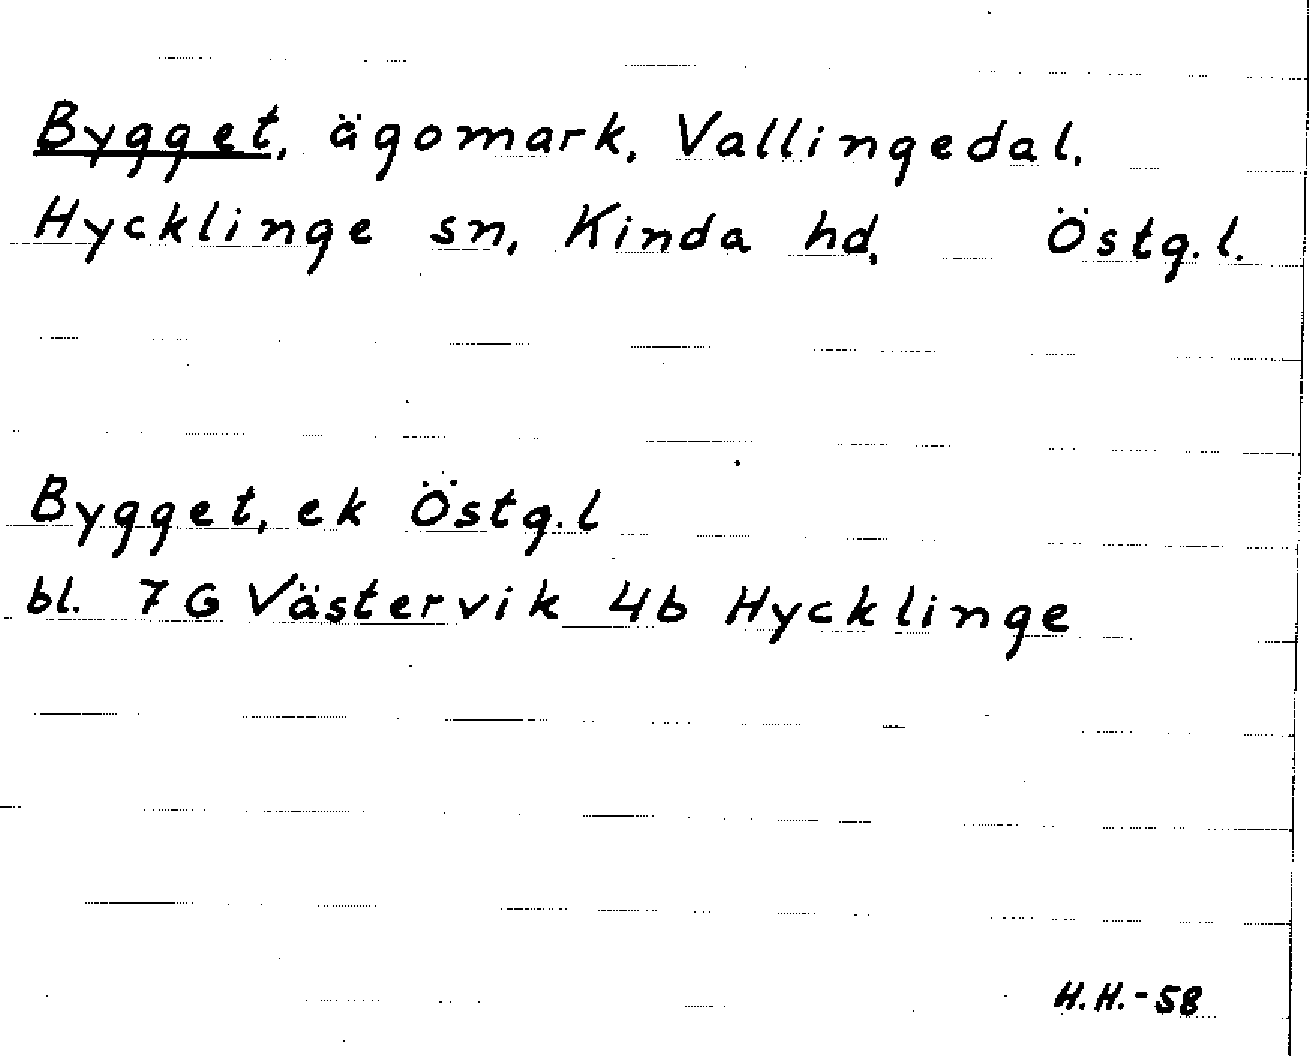 Bygget, ägomark, Vallingedal.
Hycklinge sn, Kinda hd, Östg. l.
Bygget, ek Östg. l
bl. 7 G Västervik 4b Hycklinge
H.H.-58